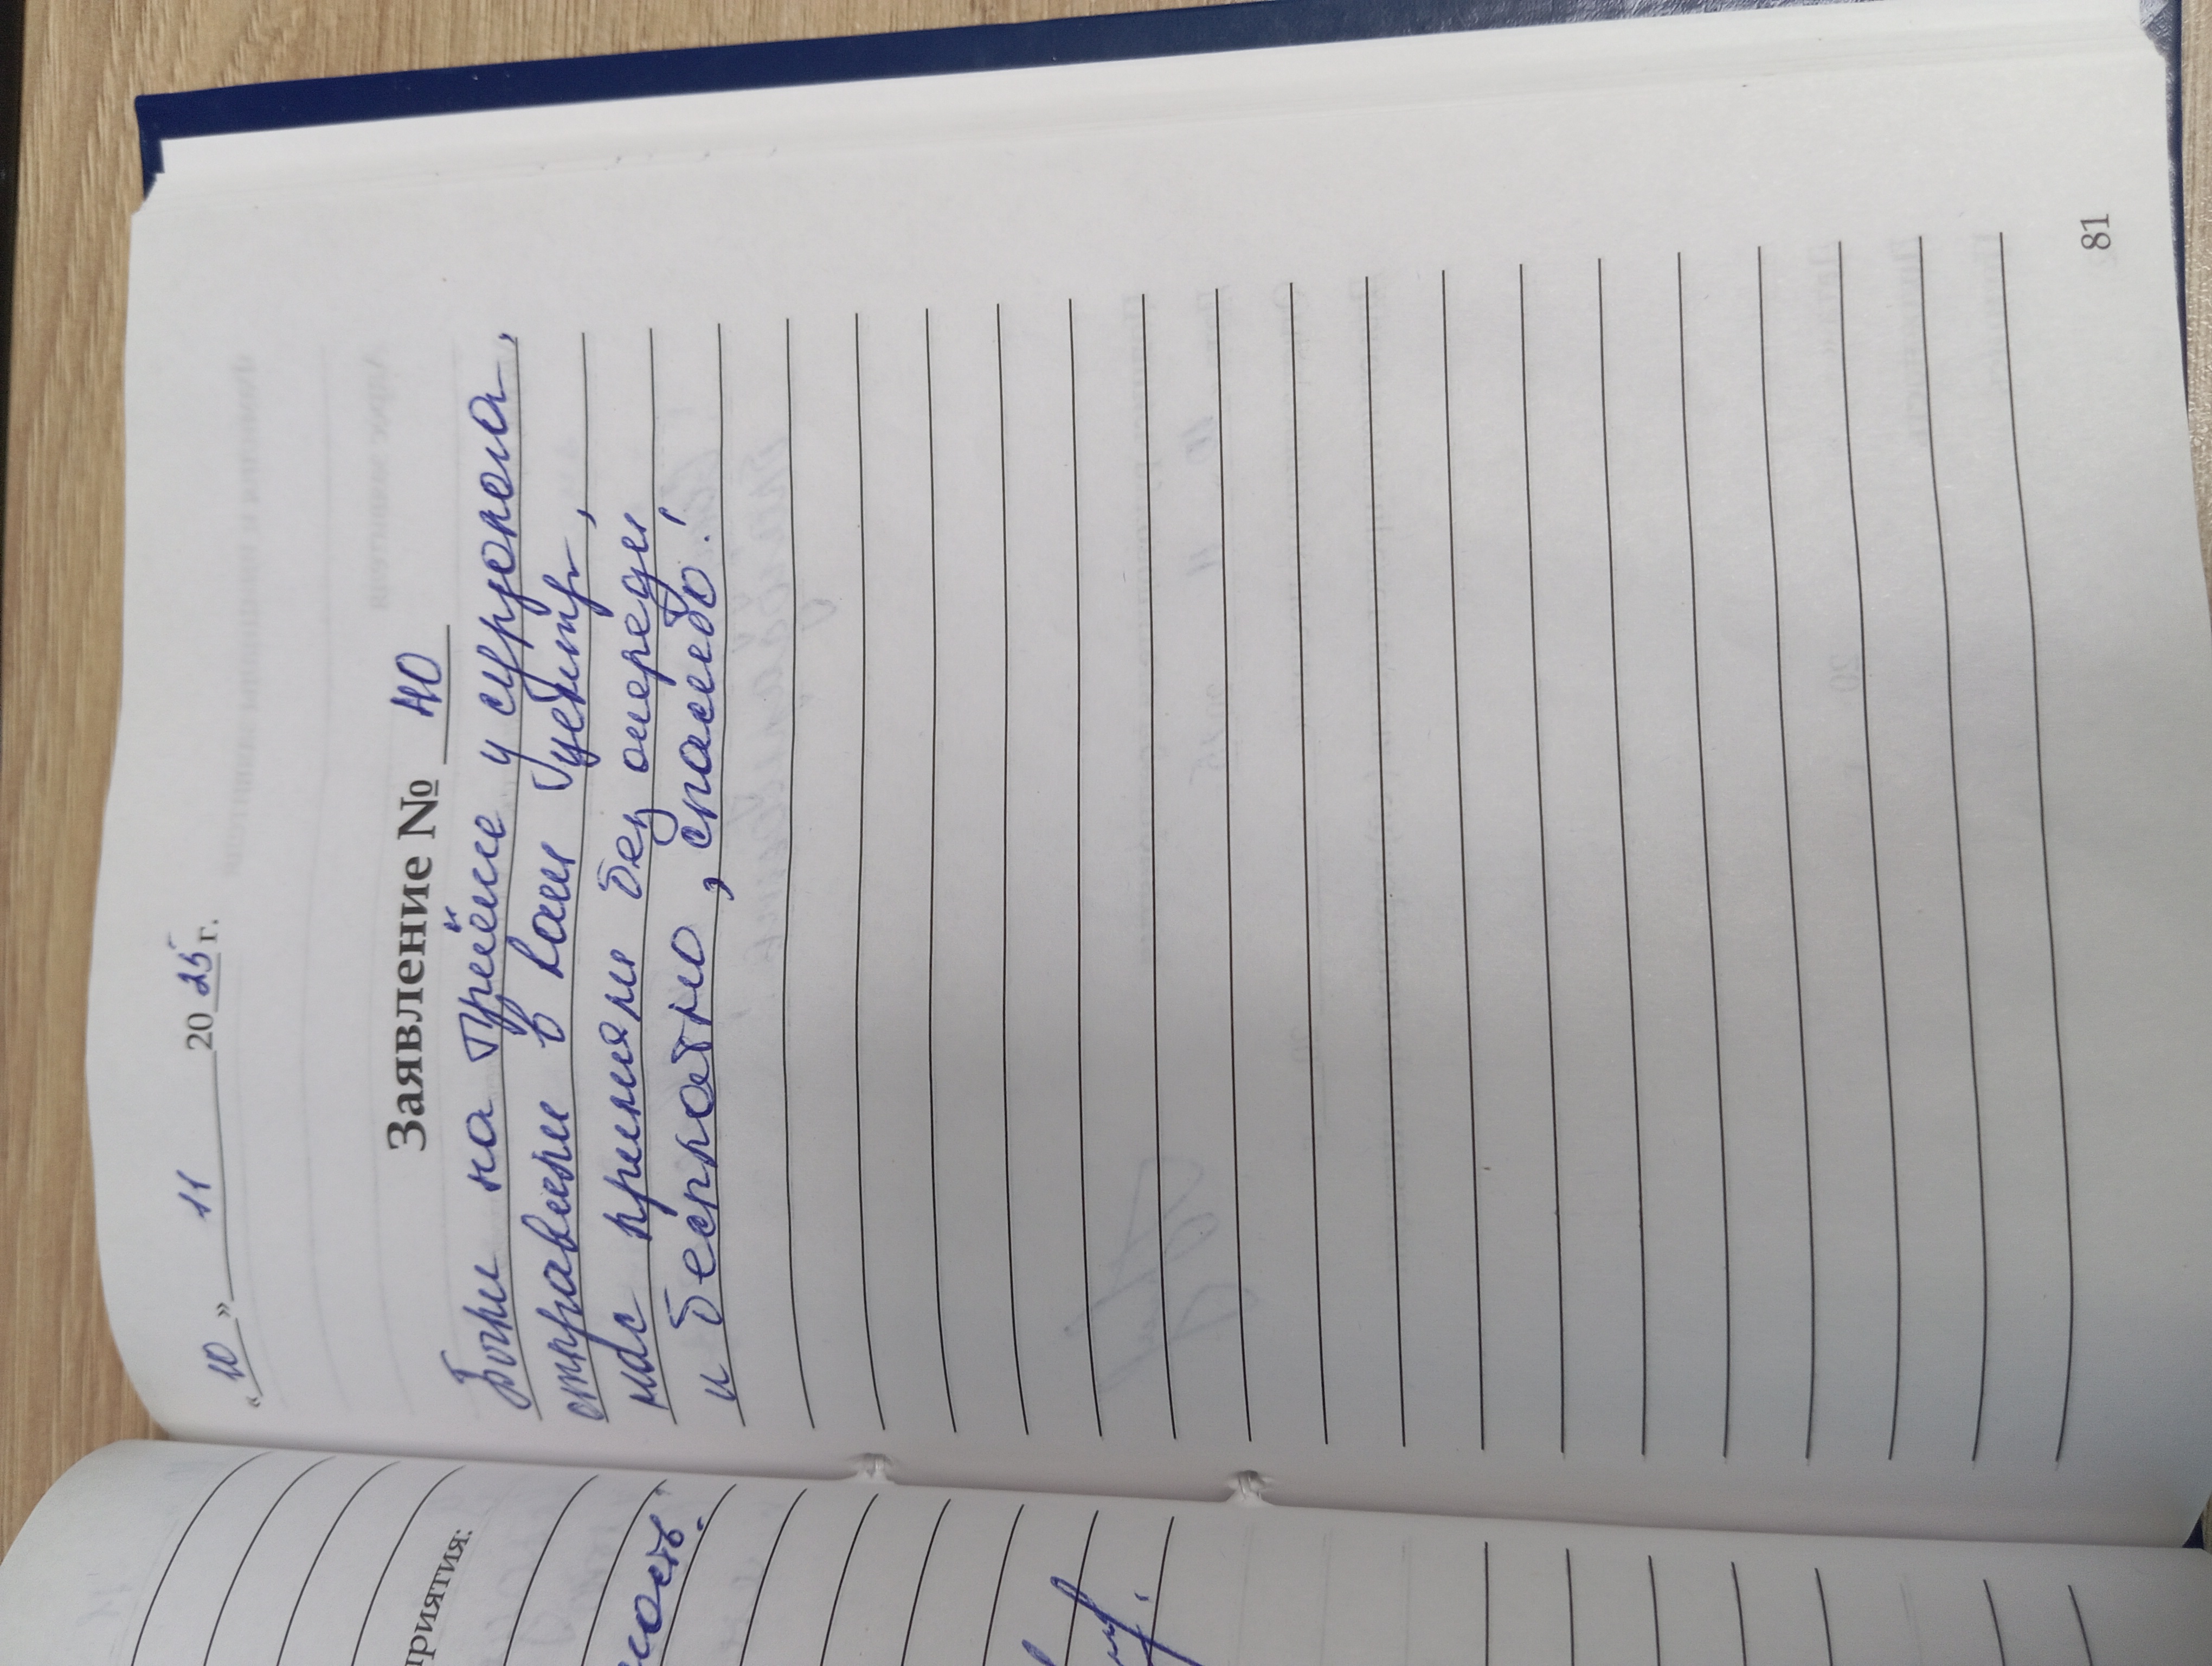 «10» 11 2025 г.
Заявление № 40
Были на приёме у сурдолога,
отправили в ваш центр,
нас приняли без очереди
и бесплатно, спасибо!
81
приятия:
ность.